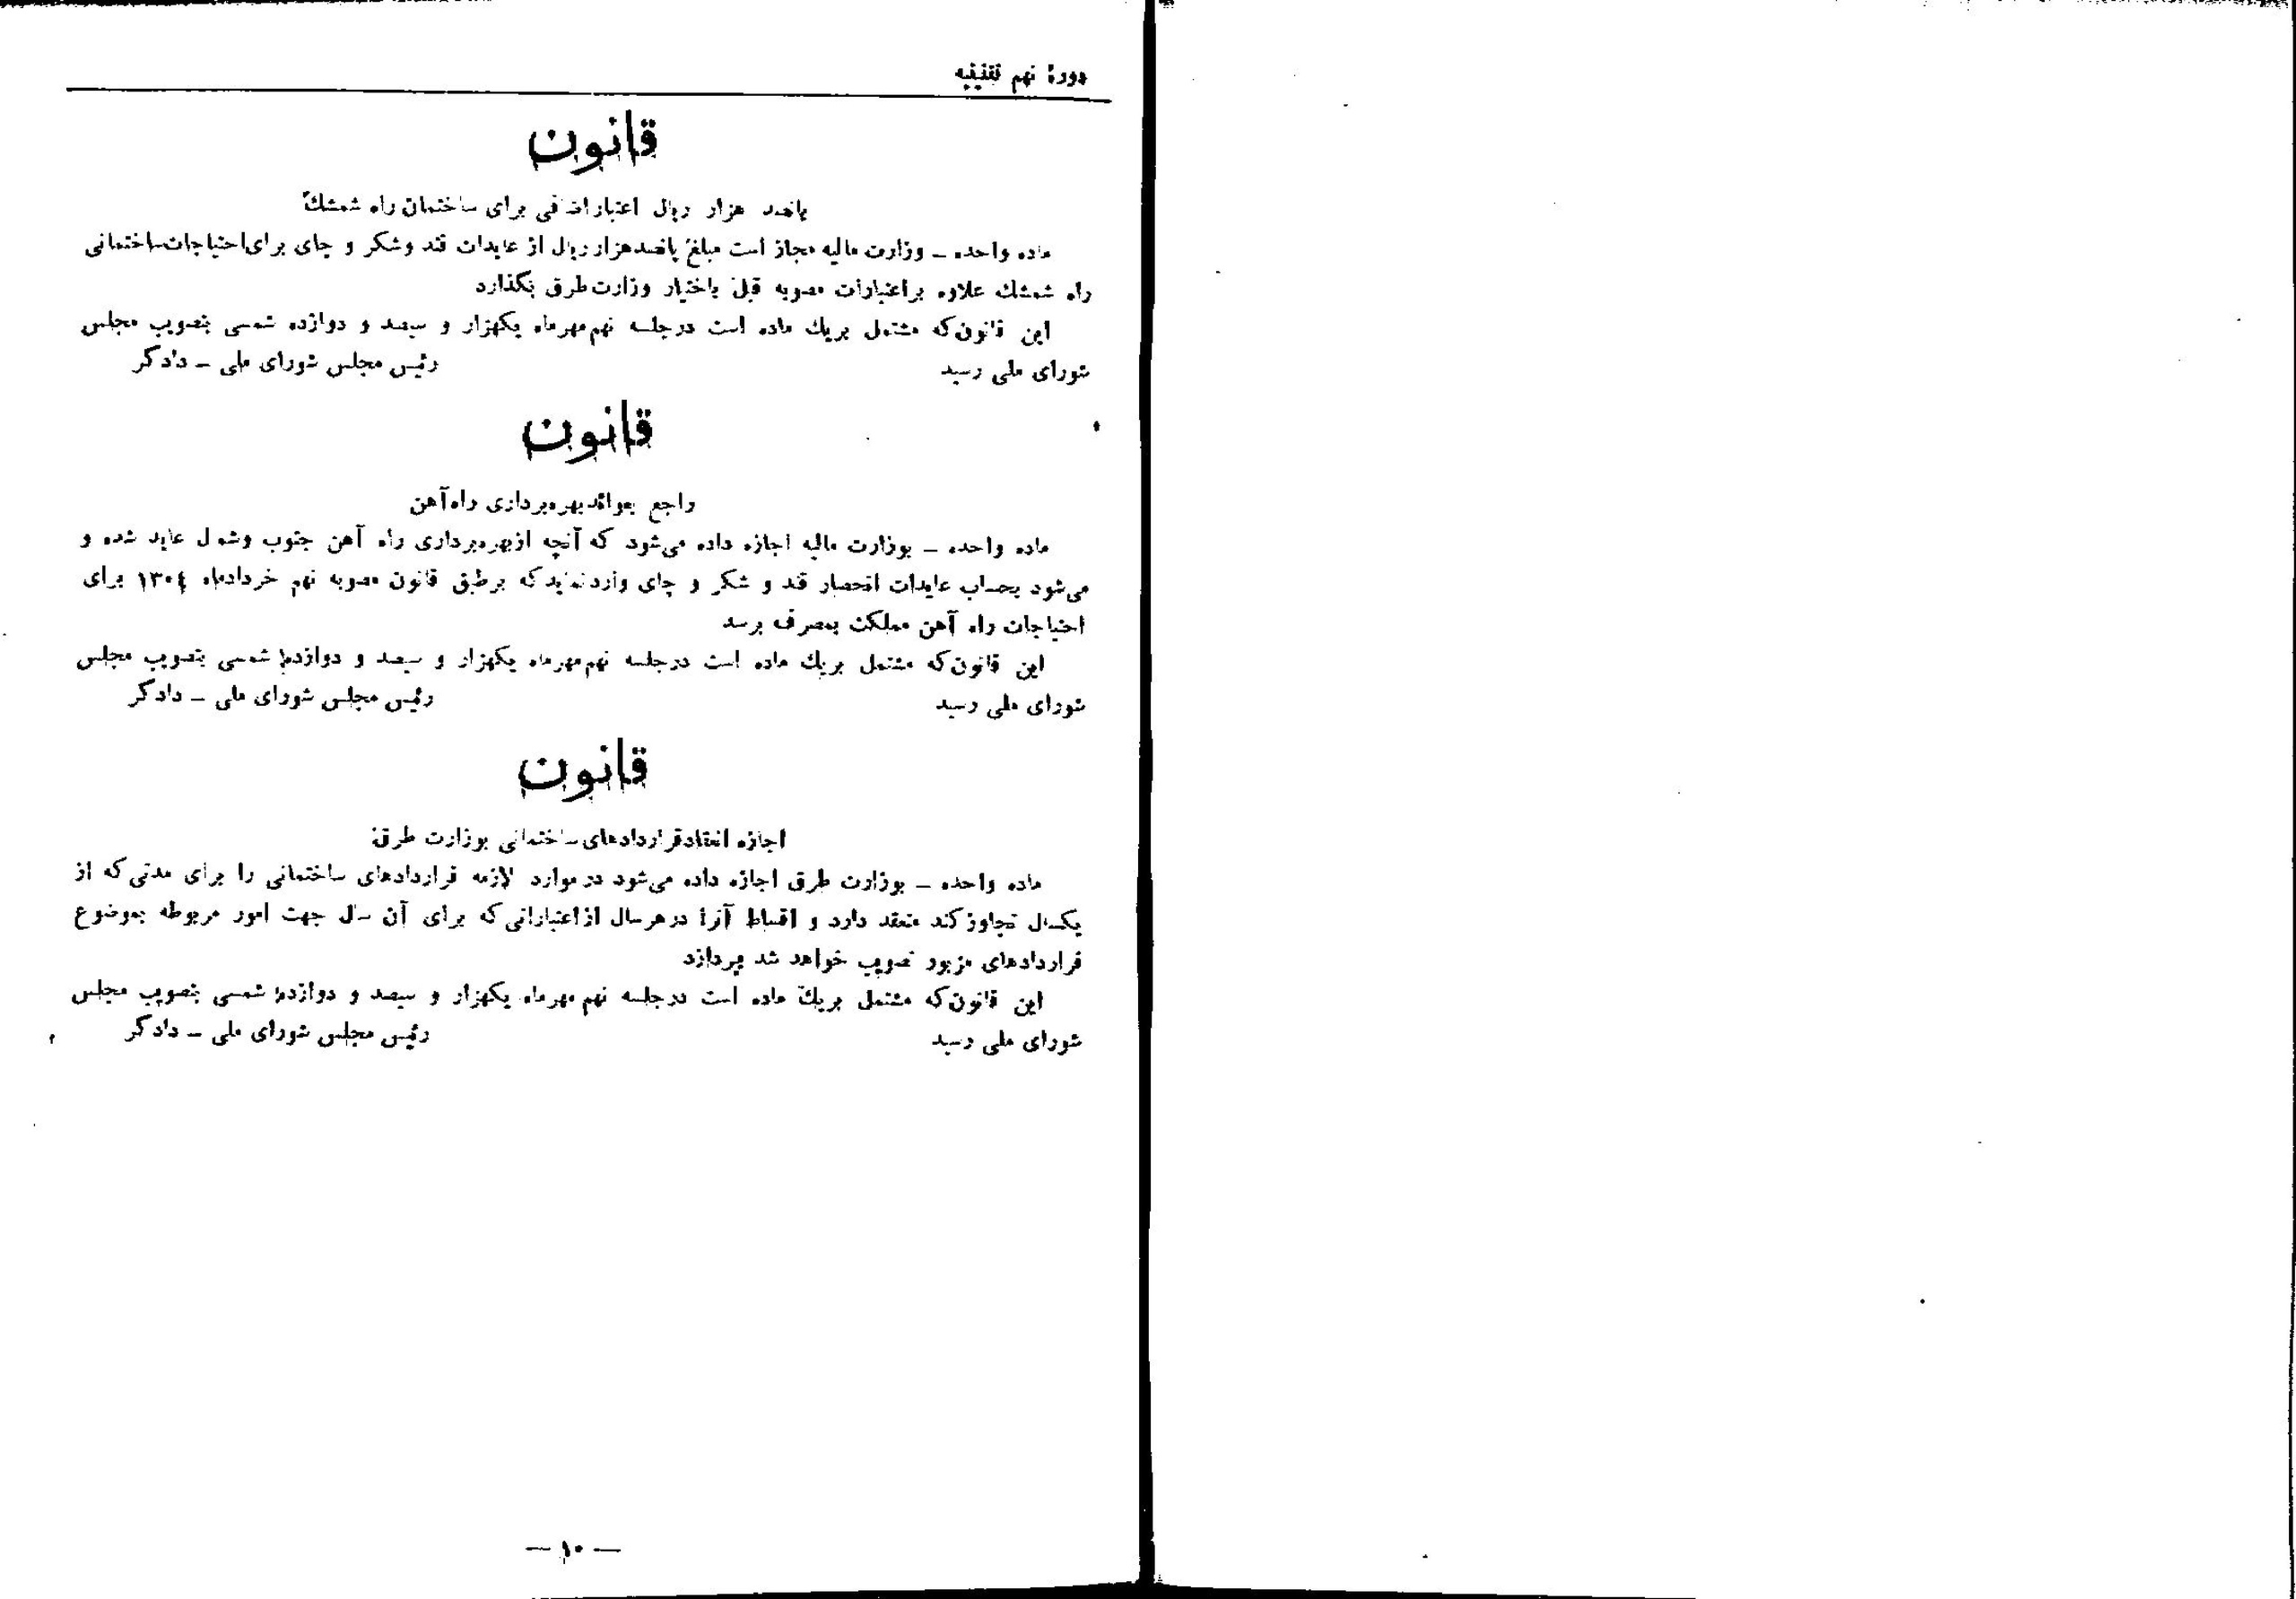 دورهٔ نهم تقنینیه
قانون
پانصد هزار ریال اعتبار اضافی برای ساختمان راه شمشك
ماده واحده ـ وزارت مالیه مجاز است مبلغ پانصدهزار ریال از عایدات قند وشکر و چای برای احتیاجات ساختمانی
راه شمشك علاوه براعتبارات مصوبه قبل باختیار وزارت طرق بگذارد
این قانون که مشتمل بریك ماده است درجلسه نهم مهرماه یکهزار و سیصد و دوازده شمسی بتصویب مجلس
شورای ملی رسید رئیس مجلس شورای ملی ـ دادگر
قانون
راجع بعوائد بهره‌برداری راه‌آهن
ماده واحده ـ بوزارت مالیه اجازه داده می‌شود که آنچه ازبهره‌برداری راه آهن جنوب وشمال عاید شده و
می‌شود بحساب عایدات انحصار قند و شکر و چای واردنماید که برطبق قانون مصوبه نهم خردادماه ۱۳۰٤ برای
احتیاجات راه آهن مملکت بمصرف برسد
این قانون که مشتمل بریك ماده است درجلسه نهم مهرماه یکهزار و سیصد و دوازده شمسی بتصویب مجلس
شورای ملی رسید رئیس مجلس شورای ملی ـ دادگر
قانون
اجازه انعقاد قراردادهای ساختمانی بوزارت طرق
ماده واحده ـ بوزارت طرق اجازه داده می‌شود در موارد لازمه قراردادهای ساختمانی را برای مدتی که از
یکسال تجاوز کند منعقد دارد و اقساط آنرا درهرسال ازاعتباراتی که برای آن سال جهت امور مربوطه بموضوع
قراردادهای مزبور تصویب خواهد شد بپردازد
این قانون که مشتمل بریك ماده است درجلسه نهم مهرماه یکهزار و سیصد و دوازده شمسی بتصویب مجلس
شورای ملی رسید رئیس مجلس شورای ملی ـ دادگر
— ۱۰ —